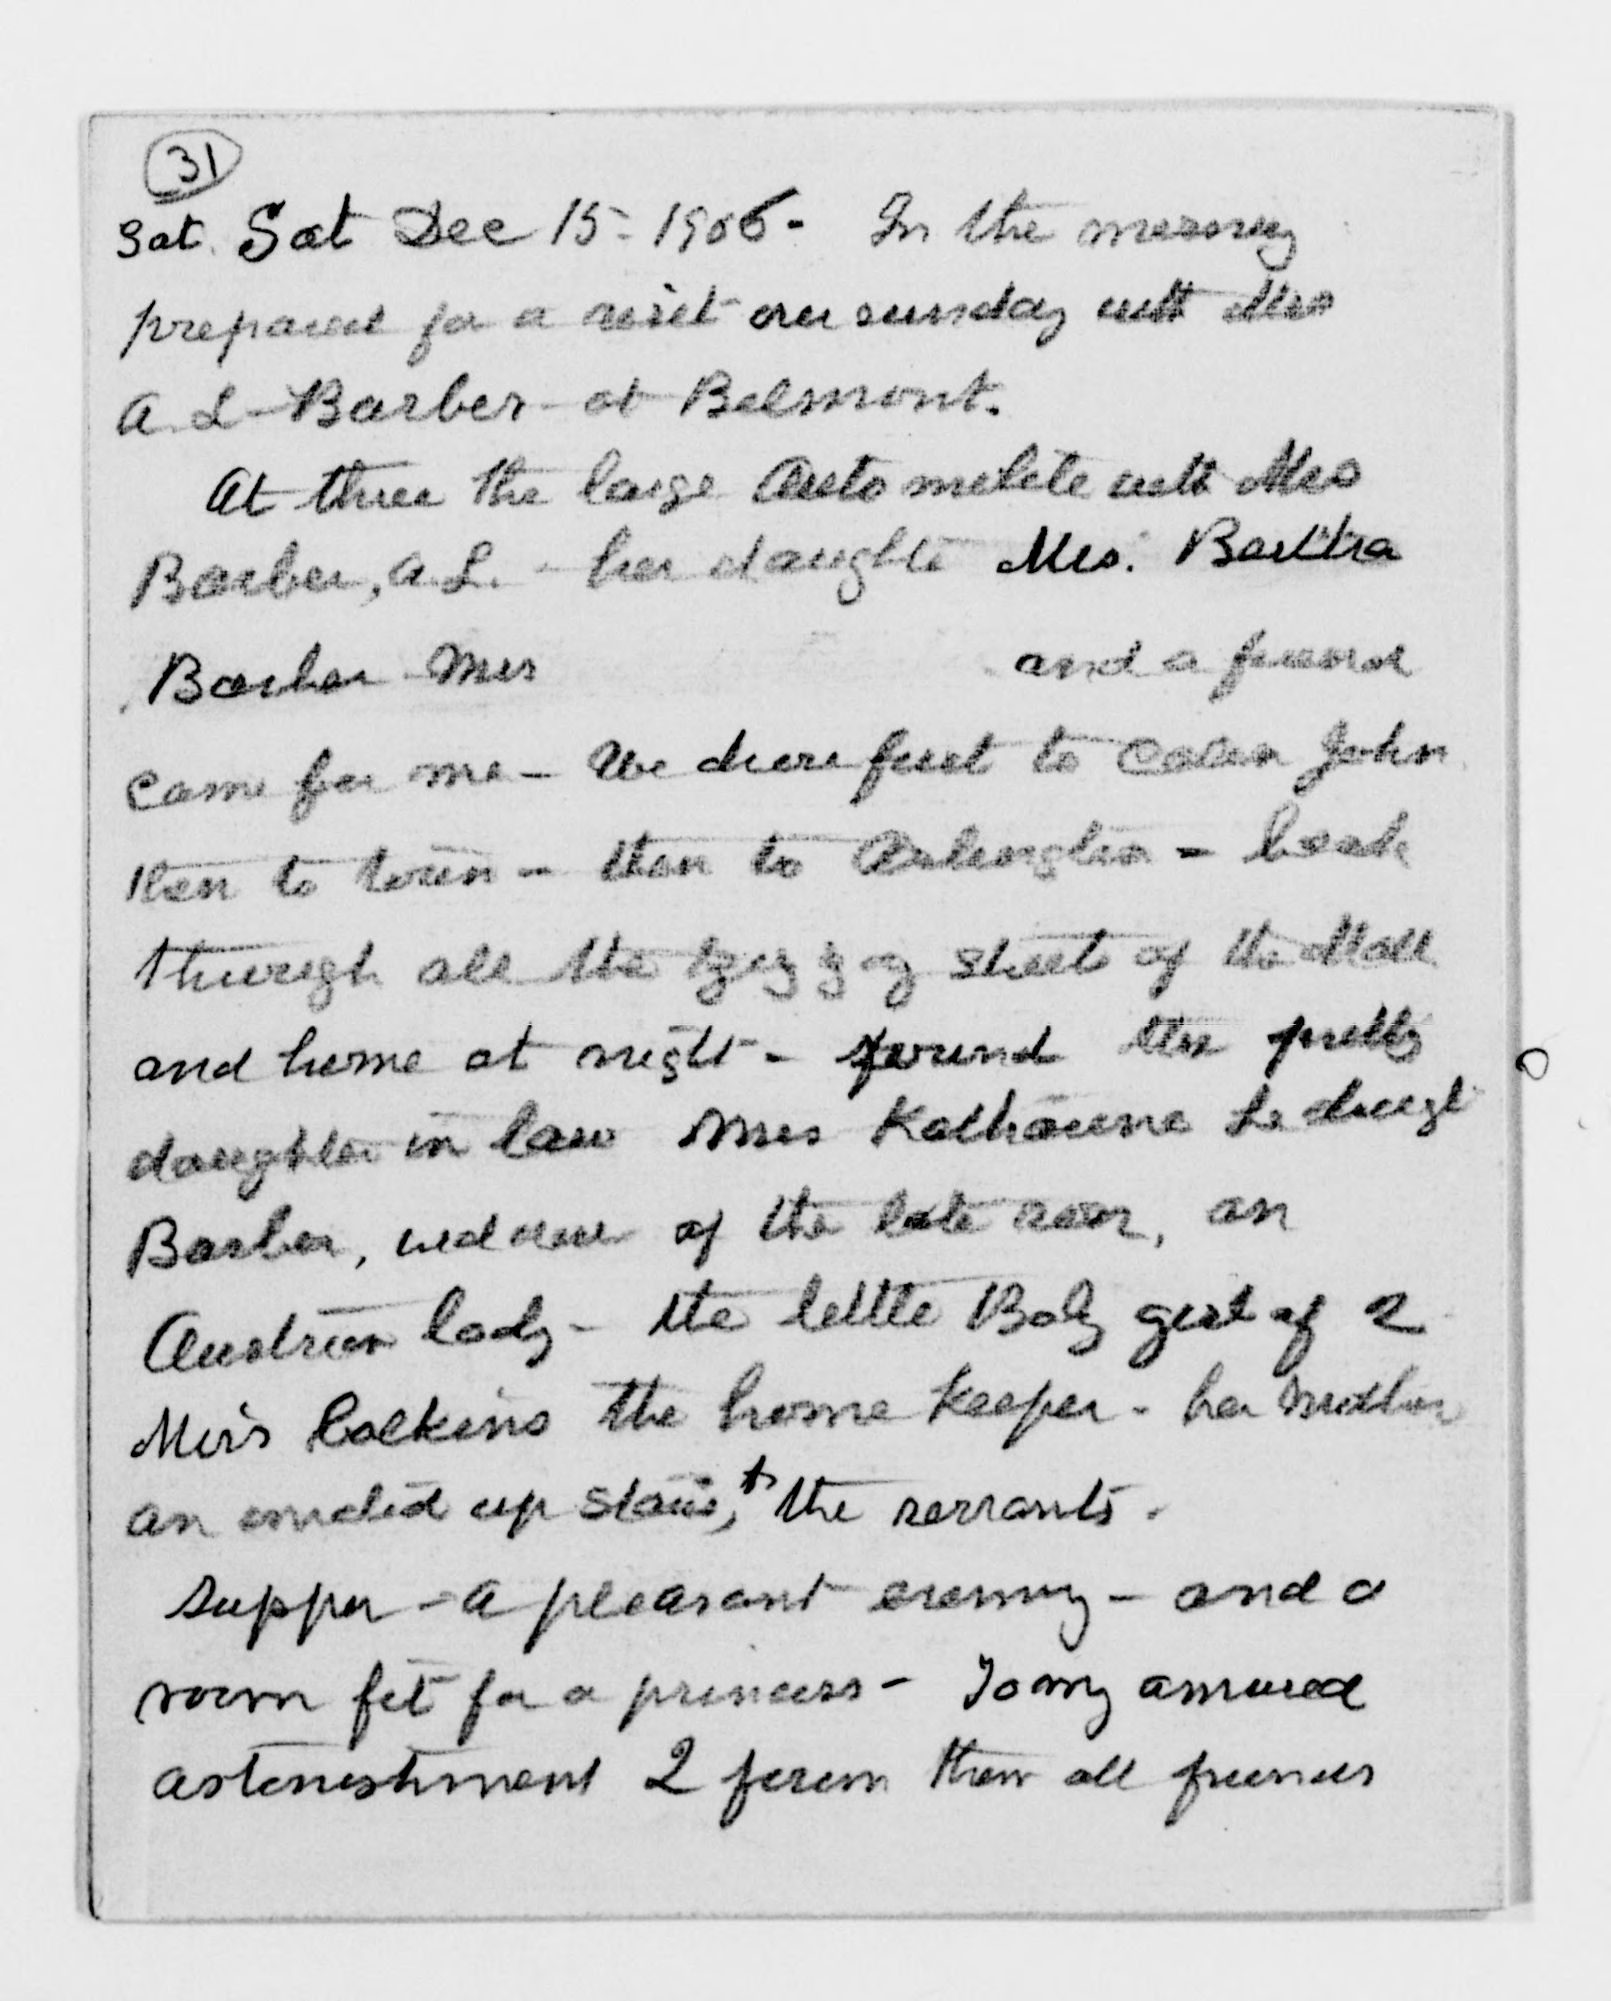 31
Sat. Sat Dec 15 - 1906 - In the morning
prepared for a visit over sunday with Mrs
A. L - Barber - at Belmont.
At three the large Automobile with Mrs
Barber, A. L. - her daughter Mrs. Bertha
Barber Mrs and a friend
came for me - We drove first to Cabin John
then to town - then to Arlington - back
through all the zig zag streets of the Mall
and home at night - found the pretty
daughter in law Mrs Katharine Le
Barber, widow of the late son, an
Austrian lady - the little Baby girl of 2
Miss Calkins the home keeper - her mother
an invalid up stairs, & the servants.
Supper - a pleasant evening - and a
room fit for a princess - To my amused
astonishment I them all